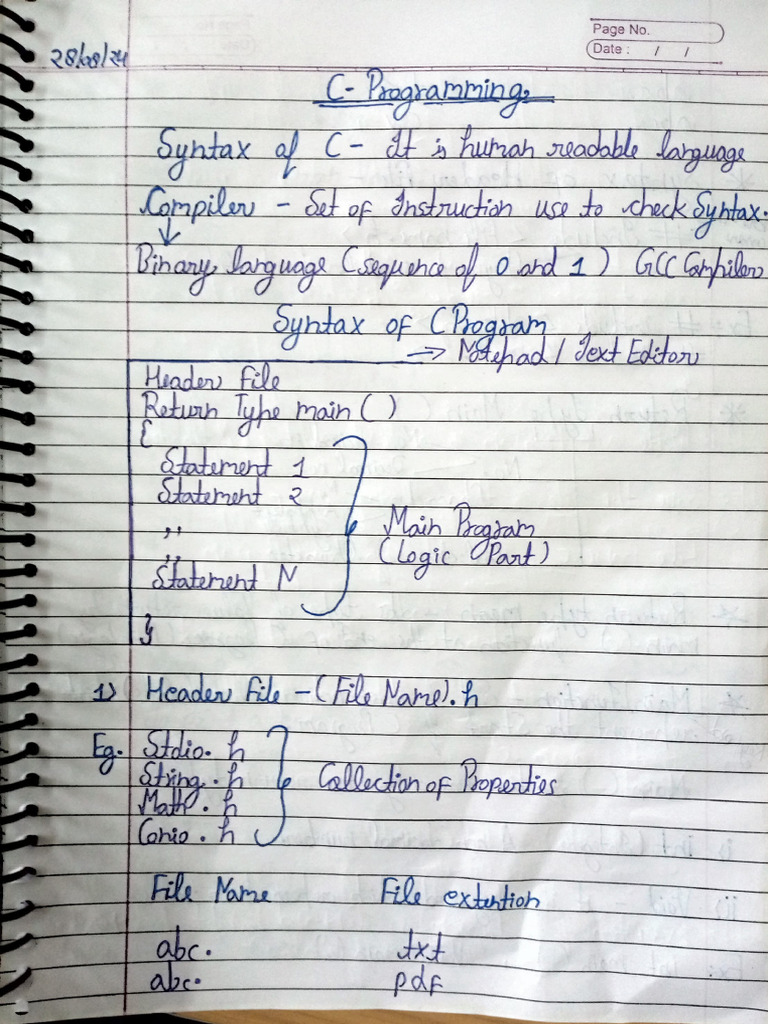 Page No.
Date : / /
28/08/24
C- Programming
Syntax of C - It is human readable language
Compiler - Set of Instruction use to check Syntax.
↓
Binary language (sequence of 0 and 1) GCC Compiler
Syntax of C Program
→ Notepad / Text Editor
Header File
Return Type main ( )
{
Statement 1
Statement 2
,,
Main Program
,,
(Logic Part)
Statement N
}
1) Header File - (File Name).h
Eg. Stdio. h
String. h
Collection of Properties
Math. h
Conio. h
File Name File extention
abc. txt
abc. pdf